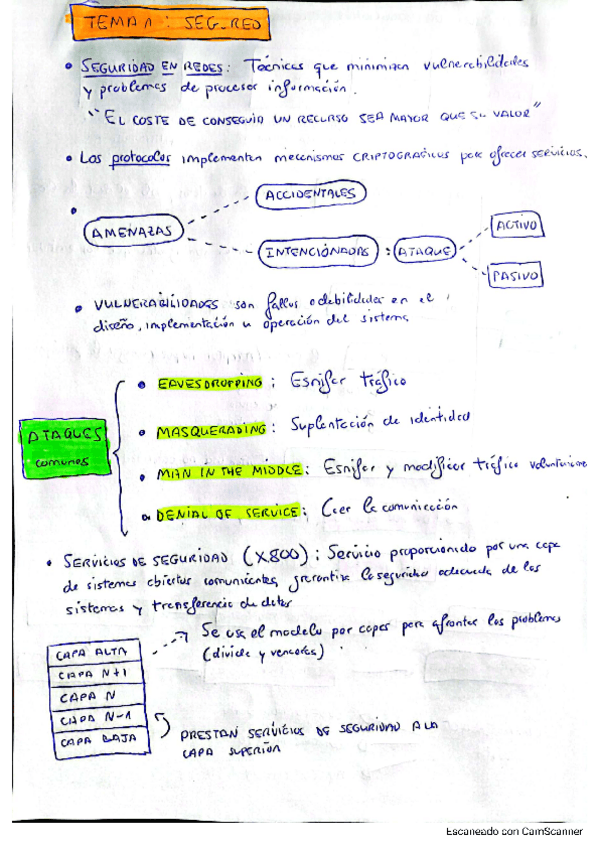 TEMA 1: SEG_RED
• SEGURIDAD EN REDES: Técnicas que minimizan vulnerabilidades
y problemas de procesar información.
"EL COSTE DE CONSEGUIR UN RECURSO SEA MAYOR QUE SU VALOR"
• Los protocolos implementan mecanismos CRIPTOGRAFICOS para ofrecer servicios.
AMENAZAS
ACCIDENTALES
INTENCIONADAS : ATAQUE
ACTIVO
PASIVO
• VULNERABILIDADES son fallos o debilidades en el
diseño, implementación u operación del sistema
ATAQUES
comunes
• EAVESDROPPING: Esnifar tráfico
• MASQUERADING: Suplantación de identidad
• MAN IN THE MIDDLE: Esnifar y modificar tráfico
• DENIAL OF SERVICE: Caer la comunicación
• SERVICIOS DE SEGURIDAD (X800): Servicio proporcionado por una capa
de sistemas abiertos comunicantes, garantiza la seguridad adecuada de los
sistemas y transferencia de datos
CAPA ALTA
CAPA N+1
CAPA N
CAPA N-1
CAPA BAJA
Se usa el modelo por capas para afrontar los problemas
(divide y vencerás)
PRESTAN SERVICIOS DE SEGURIDAD A LA
CAPA SUPERIOR
Escaneado con CamScanner